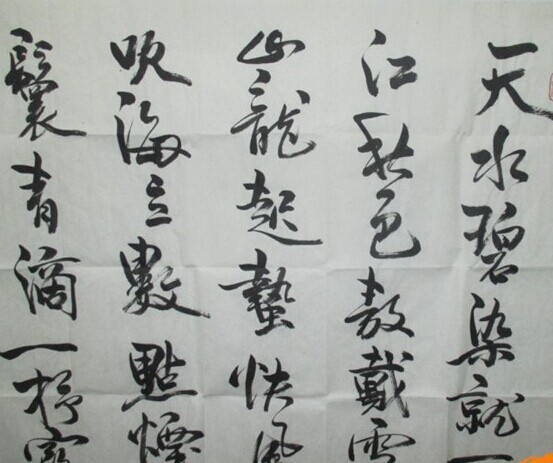 天水碧染就一
江秋色敖戴雪
山龍起蟄快風
吹海立數點煙
鬟青滴一杼